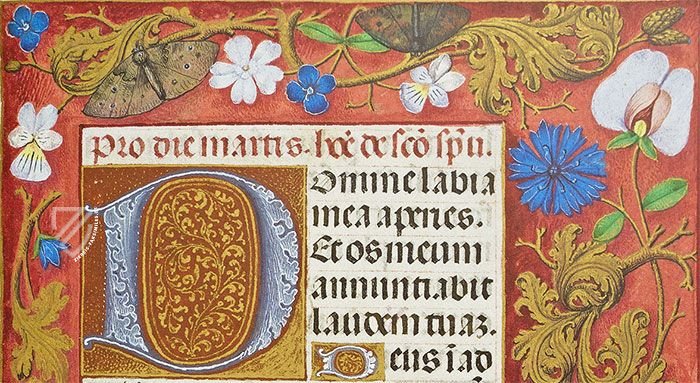 Pro die martis. hoẽ de sco spũ.
Domine labia
mea aperies.
Et os meum
annunciabit
laudem tuaz.
Deus ĩ ad